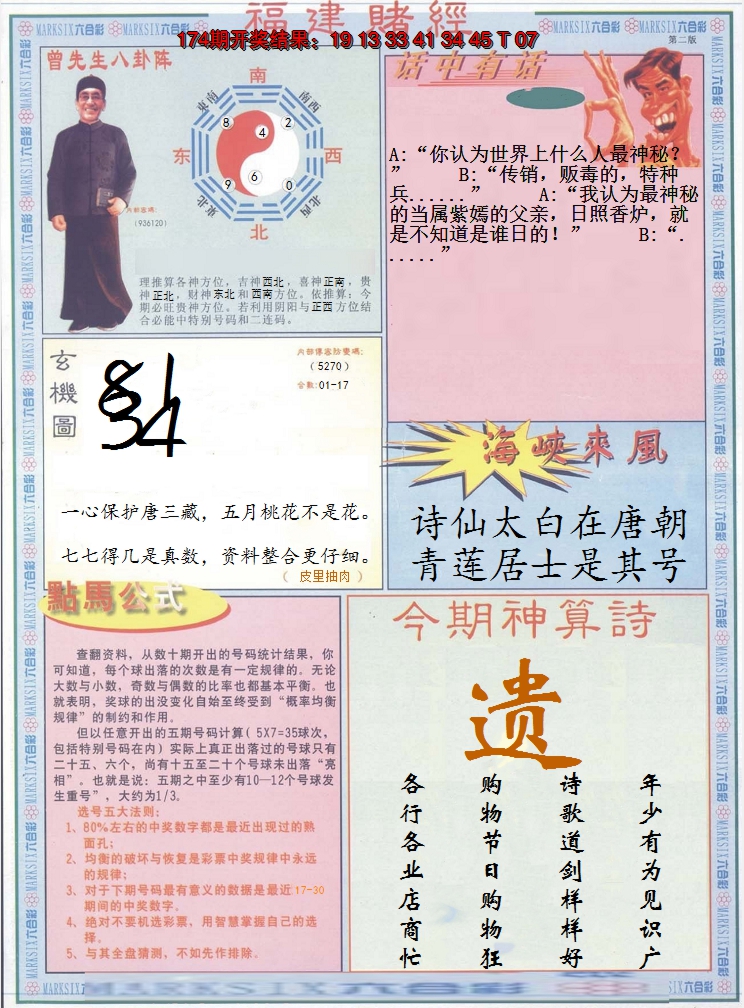 福建賭經
174期开奖结果：19 13 33 41 34 45 T 07
第二版
MARKSIX六合彩
曾先生八卦阵
南
东南
南西
8
4
2
东
西
9
6
0
东北
北西
北
内部密碼:
(936120)
理推算各神方位，吉神西北，喜神正南，贵
神正北，财神东北和西南方位。依推算：今
期必旺贵神方位。若利用阴阳与正西方位结
合必能中特别号码和二连码。
话中有话
A:“你认为世界上什么人最神秘？
” B:“传销，贩毒的，特种
兵......” A:“我认为最神秘
的当属紫嫣的父亲，日照香炉，就
是不知道是谁日的！” B:“.
.....”
玄機圖
81
34
(5270)
合数:01-17
一心保护唐三藏，五月桃花不是花。
七七得几是真数，资料整合更仔细。
（ 皮里抽肉 ）
海峽來風
诗仙太白在唐朝
青莲居士是其号
點馬公式
查翻资料，从数十期开出的号码统计结果，你
可知道，每个球出落的次数是有一定规律的。无论
大数与小数，奇数与偶数的比率也都基本平衡。也
就表明，奖球的出没变化自始至终受到“概率均衡
规律”的制约和作用。
但以任意开出的五期号码计算( 5X7=35球次，
包括特别号码在内) 实际上真正出落过的号球只有
二十五、六个，尚有十五至二十个号球未出落“亮
相”。也就是说：五期之中至少有10—12个号球发
生重号”，大约为1/3。
选号五大法则：
1、80%左右的中奖数字都是最近出现过的熟
面孔；
2、均衡的破坏与恢复是彩票中奖规律中永远
的规律；
3、对于下期号码最有意义的数据是最近17-30
期间的中奖数字。
4、绝对不要机选彩票，用智慧掌握自己的选
择。
5、与其全盘猜测，不如先作排除。
今期神算詩
遗
年少有为见识广
诗歌道剑样样好
购物节日购物狂
各行各业店商忙